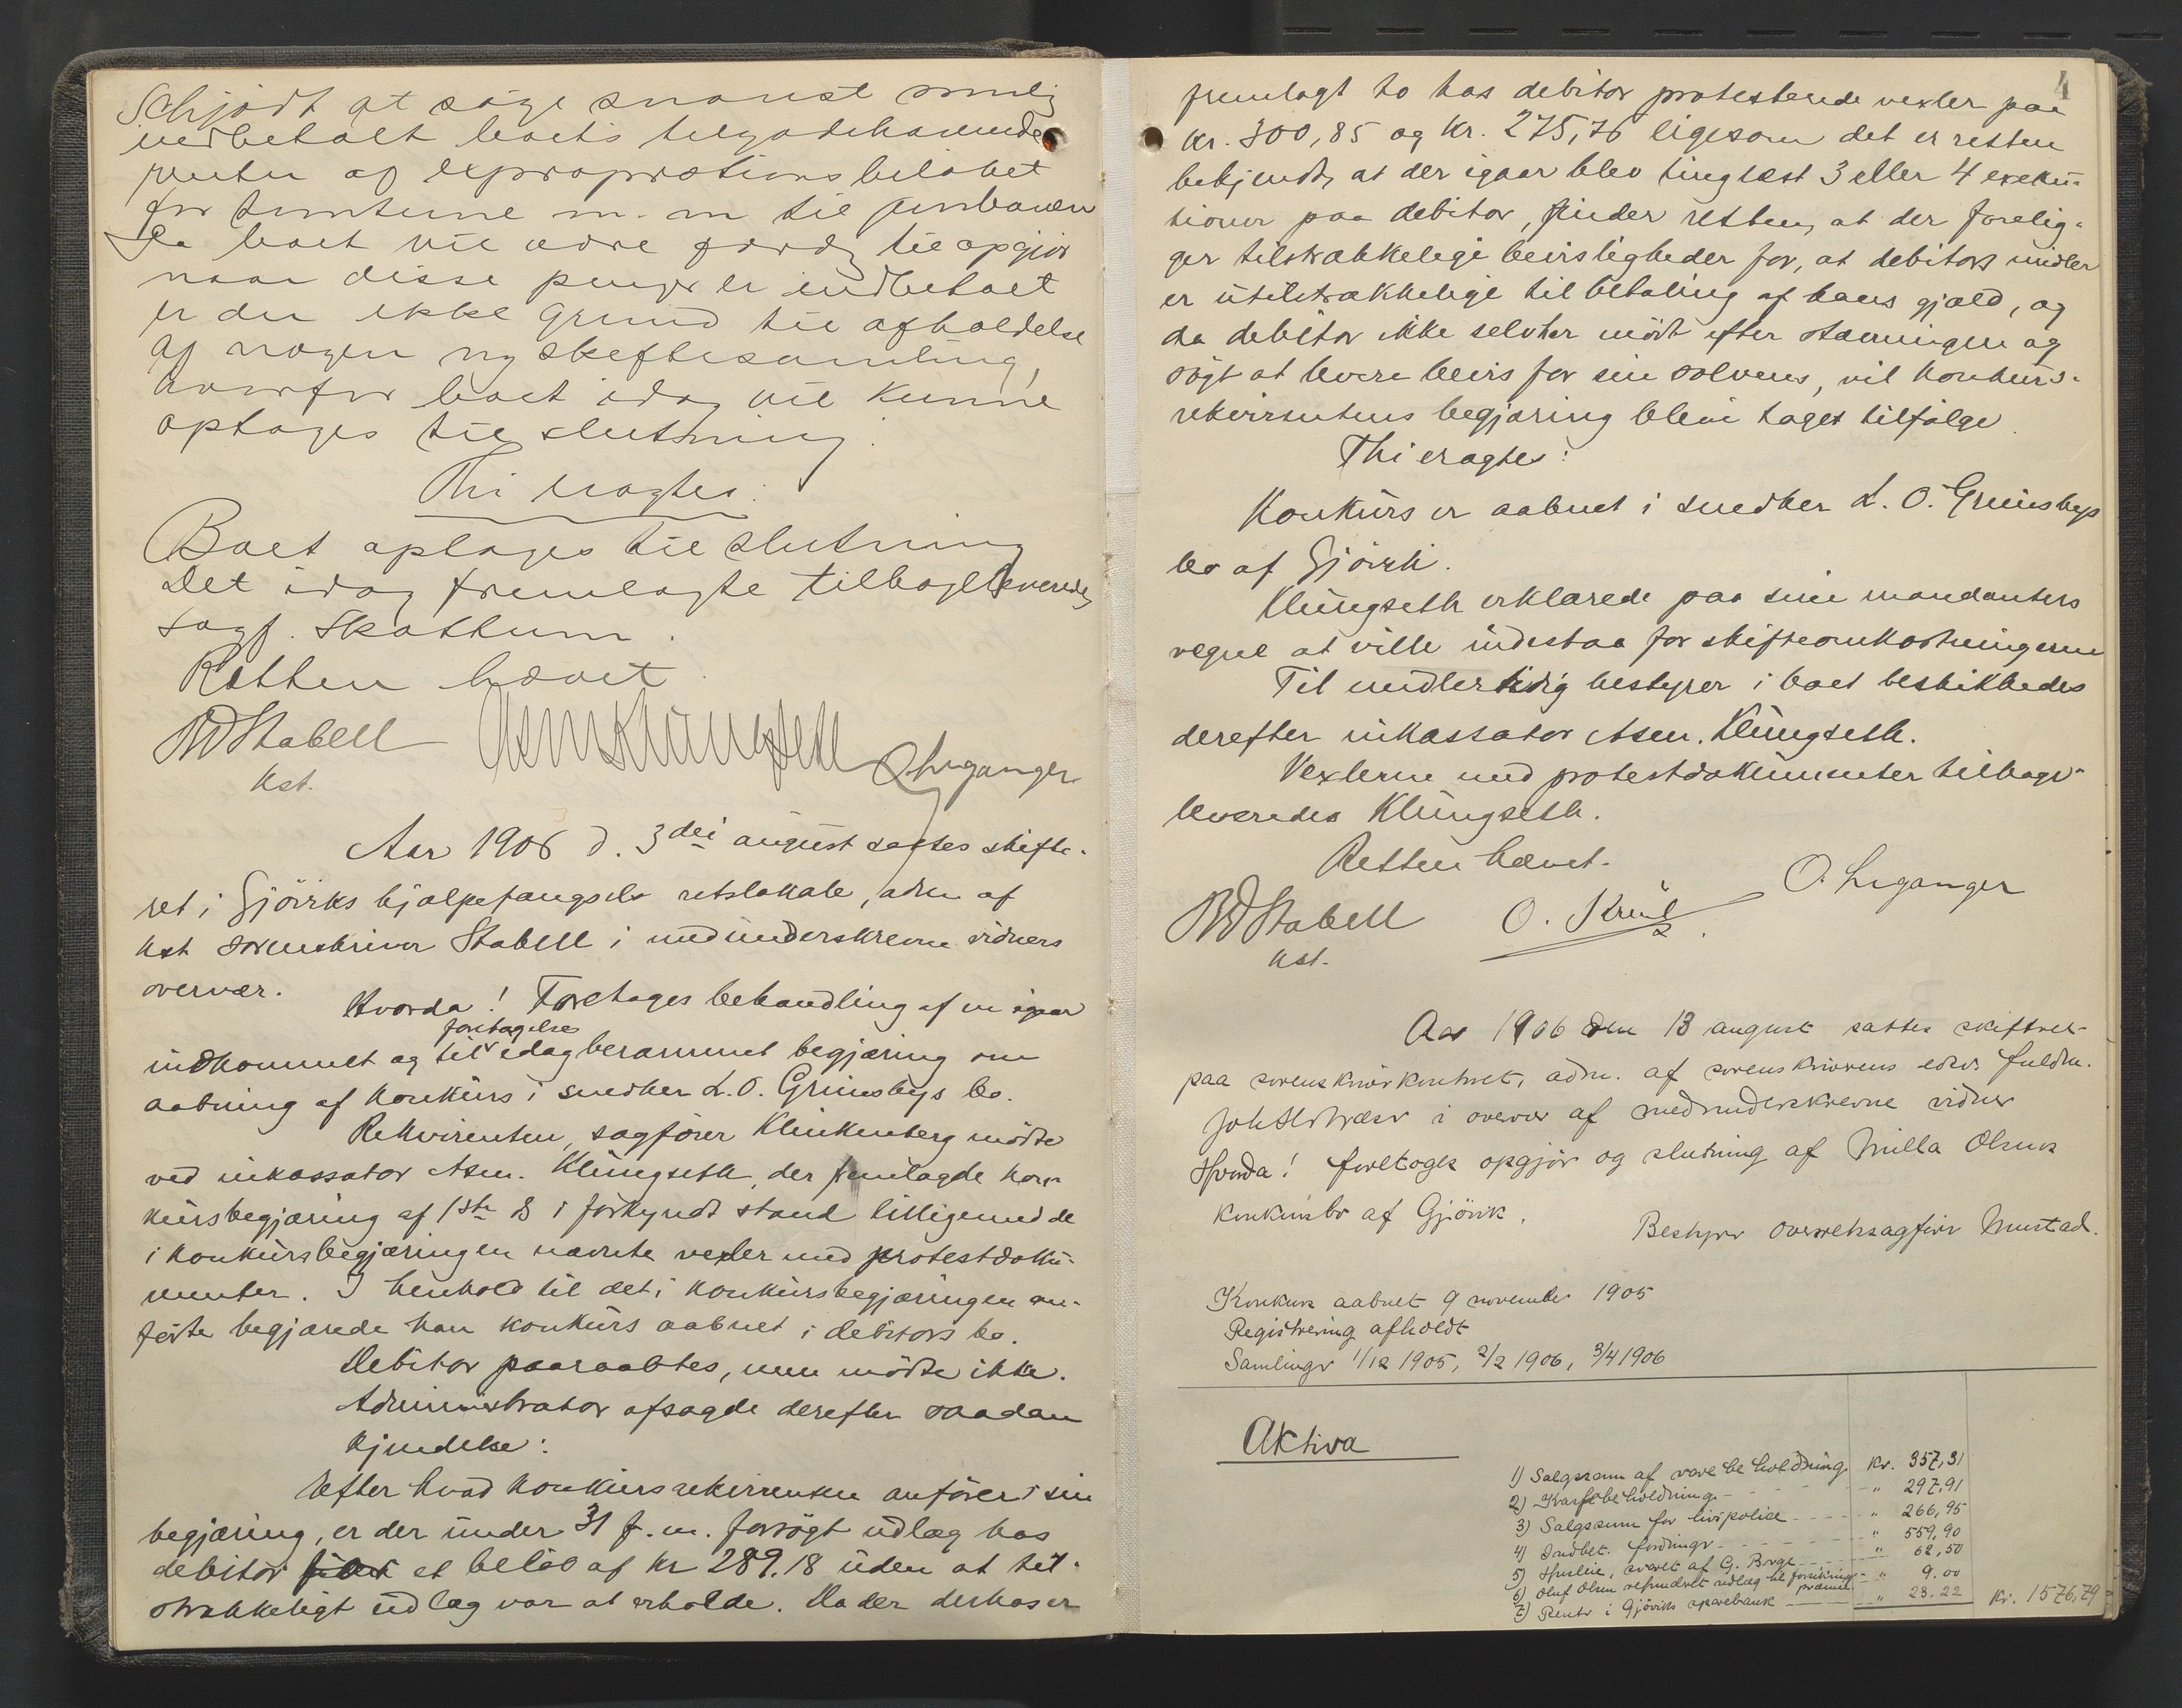 Schjødt at søge snarest mulig
indbetalt boets tilgodehavende
renter af expropriationsbeløbet
for tomterne m. m til jernbanen
Da boet vil være færdig til opgjør
naar disse penge er indbetalt
er der ikke grund til afholdelse
af nogen ny skiftesamling,
hvorfor boet idag vil kunne
optages til slutning.
Thi eragtes:
Boet optages til slutning
Det idag fremlagte tilbageleveredes
sagf. Skattum.
Retten hævet.
Stabell
Kst.
Asm Klüngseth
O Leganger
Aar 1906 d. 3dei august sattes skifte-
ret i Gjøviks hjælpefængsels retslokale, adm af
kst sorenskriver Stabell i medunderskrevne vidners
overvær.
Hvorda! Foretages behandling af en igaar
foretagelse
indkommet og til idag berammet begjæring om
aabning af konkurs i snedker L. O. Grimsbys bo.
Rekvirenten, sagfører Klinkenberg mødte
ved inkassator Asm. Klüngseth, der fremlagde kon-
kursbegjæring af 1ste ds i forkyndt stand tilligemed de
i konkursbegjæringen nævnte vexler med protestdoku-
menter. I henhold til det i konkursbegjæringen an-
førte begjærede han konkurs aabnet i debitors bo.
Debitor paaraabtes, men mødte ikke.
Administrator afsagde derefter saadan
kjendelse:
Efter hvad konkursrekvirenten anfører i sin
begjæring, er der under 31 f. m. forsøgt udlæg hos
debitor for et beløb af kr 289.18 uden at til-
strækkeligt udlæg var at erholde. Da der derhos er
4
fremlagt to hos debitor protesterede vexler paa
kr. 300,85 og kr. 275,76 ligesom det er retten
bekjendt, at der igaar blev tinglæst 3 eller 4 exeku-
tioner paa debitor, finder retten, at der forelig-
ger tilstrækkelige bevisligheder for, at debitors midler
er utilstrækkelige til betaling af hans gjæld, og
da debitor ikke selv har mødt efter stævningen og
søgt at levere bevis for sin solvens, vil konkurs-
rekvirentens begjæring blive taget tilfølge.
Thi eragtes:
Konkurs er aabnet i snedker L. O. Grimsbys
bo af Gjøvik.
Klüngseth erklærede paa sine mandanters
vegne at ville indestaa for skifteomkostningerne
Til midlertidig bestyrer i boet beskikkedes
derefter inkassator Asm. Klüngseth.
Vexlerne med protestdokumenter tilbage-
leveredes Klüngseth.
Retten hævet.
Stabell
kst.
O. Krül
O. Leganger
Aar 1906 den 13 august sattes skifteret
paa sorenskriverkontoret, adm. af sorenskriverens edsv. fuldm.
i overvær af medunderskrevne vidner
Hvorda! foretoges opgjør og slutning af Milla Olsens
konkursbo af Gjøvik.
Bestyrer overretssagfører Mustad.
Konkurs aabnet 9 november 1905
Registrering afholdt
Samlinger 1/12 1905, 2/2 1906, 3/4 1906
Aktiva
1) Salgssum af varebeholdning. kr. 357,31
2) Kassebeholdning - - - " 297,91
3) Salgssum for livspolice - - " 266,95
4) Indbet. fordringer - - - " 559,90
5) Husleie, svaret af G. Berge - - " 62,50
6) Oluf Olsen refunderet udlæg til forsikringspræmie - " 9.00
7) Renter i Gjøviks sparebank - - " 23.22 kr. 1576,79